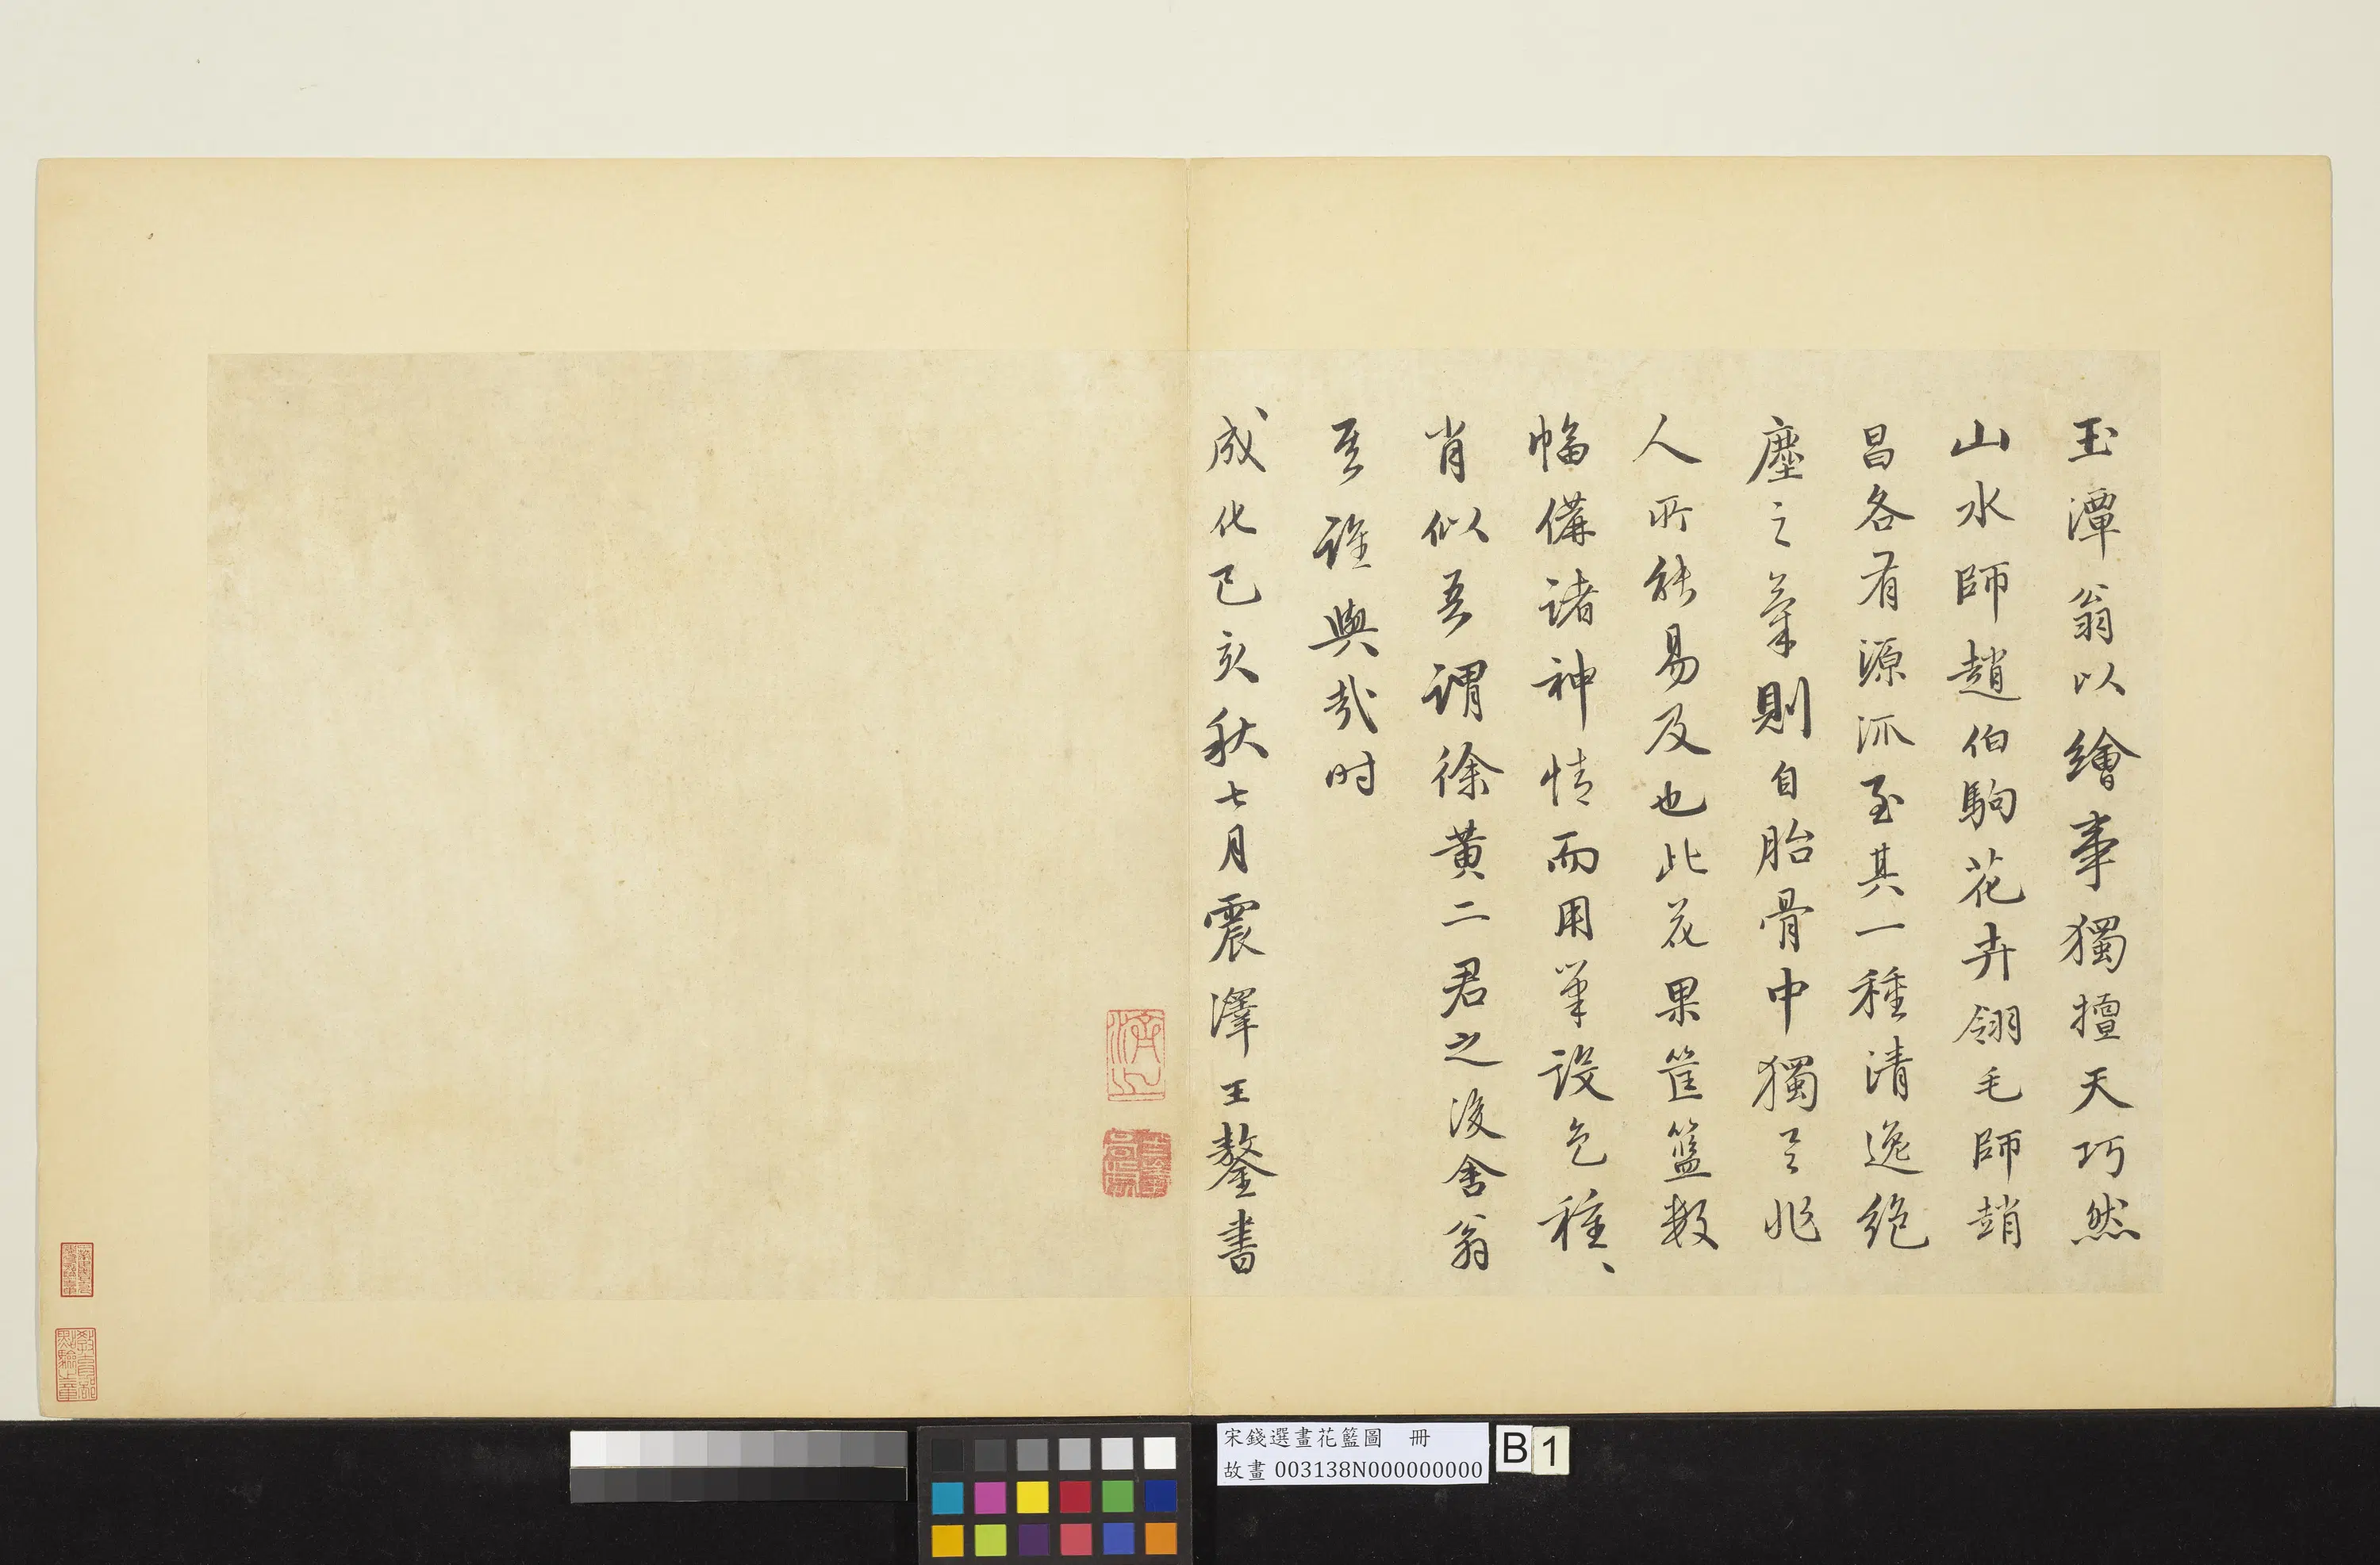 玉潭翁以繪事獨擅天巧然
山水師趙伯駒花卉翎毛師趙
昌各有源派至其一種清逸絕
塵之氣則自胎骨中獨具非
人所能易及也此花果筐籃數
幅備諸神情而用筆設色種、
肖似吾謂徐黃二君之後舍翁
其誰與哉时
成化己亥秋七月震澤王鏊書
濟之
宋錢選畫花籃圖 冊
故畫003138N000000000
B1
教育部
點驗之章